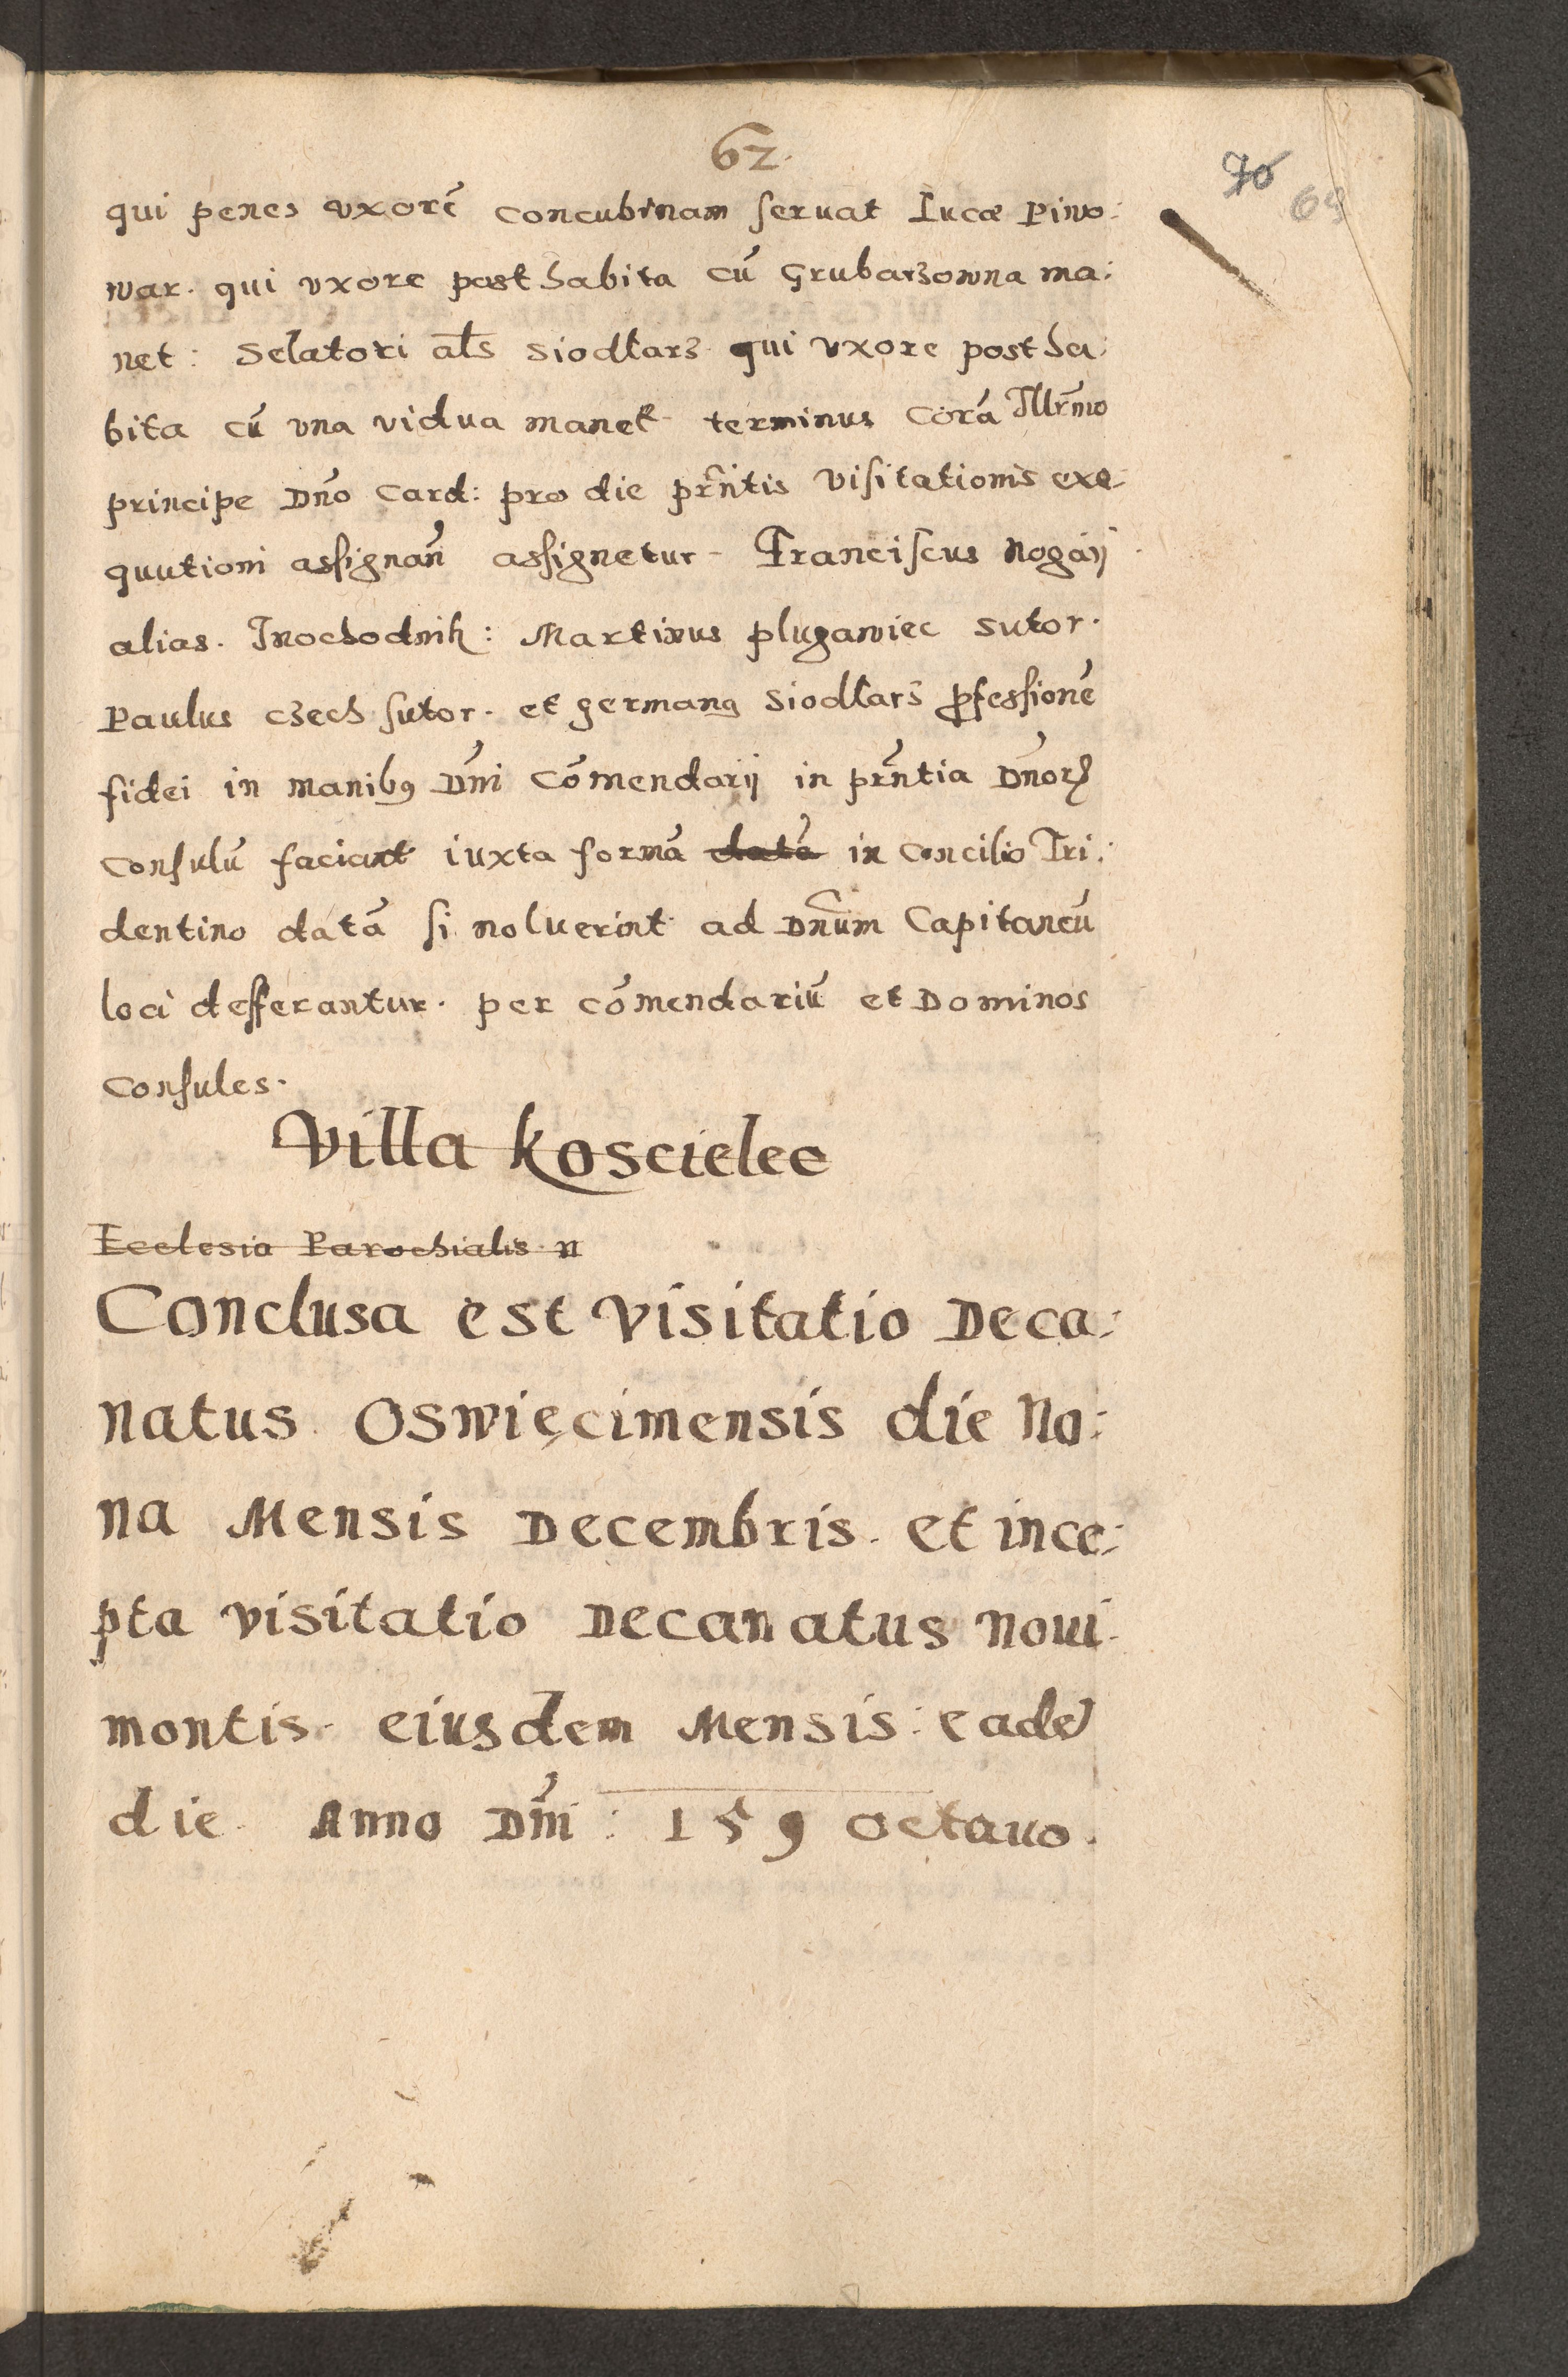 62.
70
69
qui penes vxorē concubinam ſeruat Lucæ Piwo:
war. qui vxore posthabita cū Grubarzowna ma:
net: Selatori als Siodlarz qui vxore postha:
bita cū vna vidua manet terminus Corā Illr̄mo
principe Dn̄o Card: pro die pr̄ntis viſitationis exe:
quutioni asſignan̄ asſignetur. Franciſcus Nogaÿ
alias. Inochodnik: Martinus plugawiec sutor.
Paulus czech ſutor. et germanꝰ Siodlarz ꝓfesſionē
fidei in manibꝰ Dn̄i Cōmendarij in pr̄ntia Dn̄orꝝ
Conſulū faciant iuxta formā datā in Concilio Tri:
dentino datā ſi noluerint ad Dn̄um Capitaneū
loci defferantur. per cōmendariū et Dominos
Conſules.
Villa Koscielec
Ecclesia Parochialis n
Conclusa est Visitatio Deca:
natus Oswięcimensis die No:
na Mensis Decembris. et ince:
pta visitatio Decanatus Noui
montis. eiusdem Mensis: eadē
die Anno Dn̄i: 159 octauo.